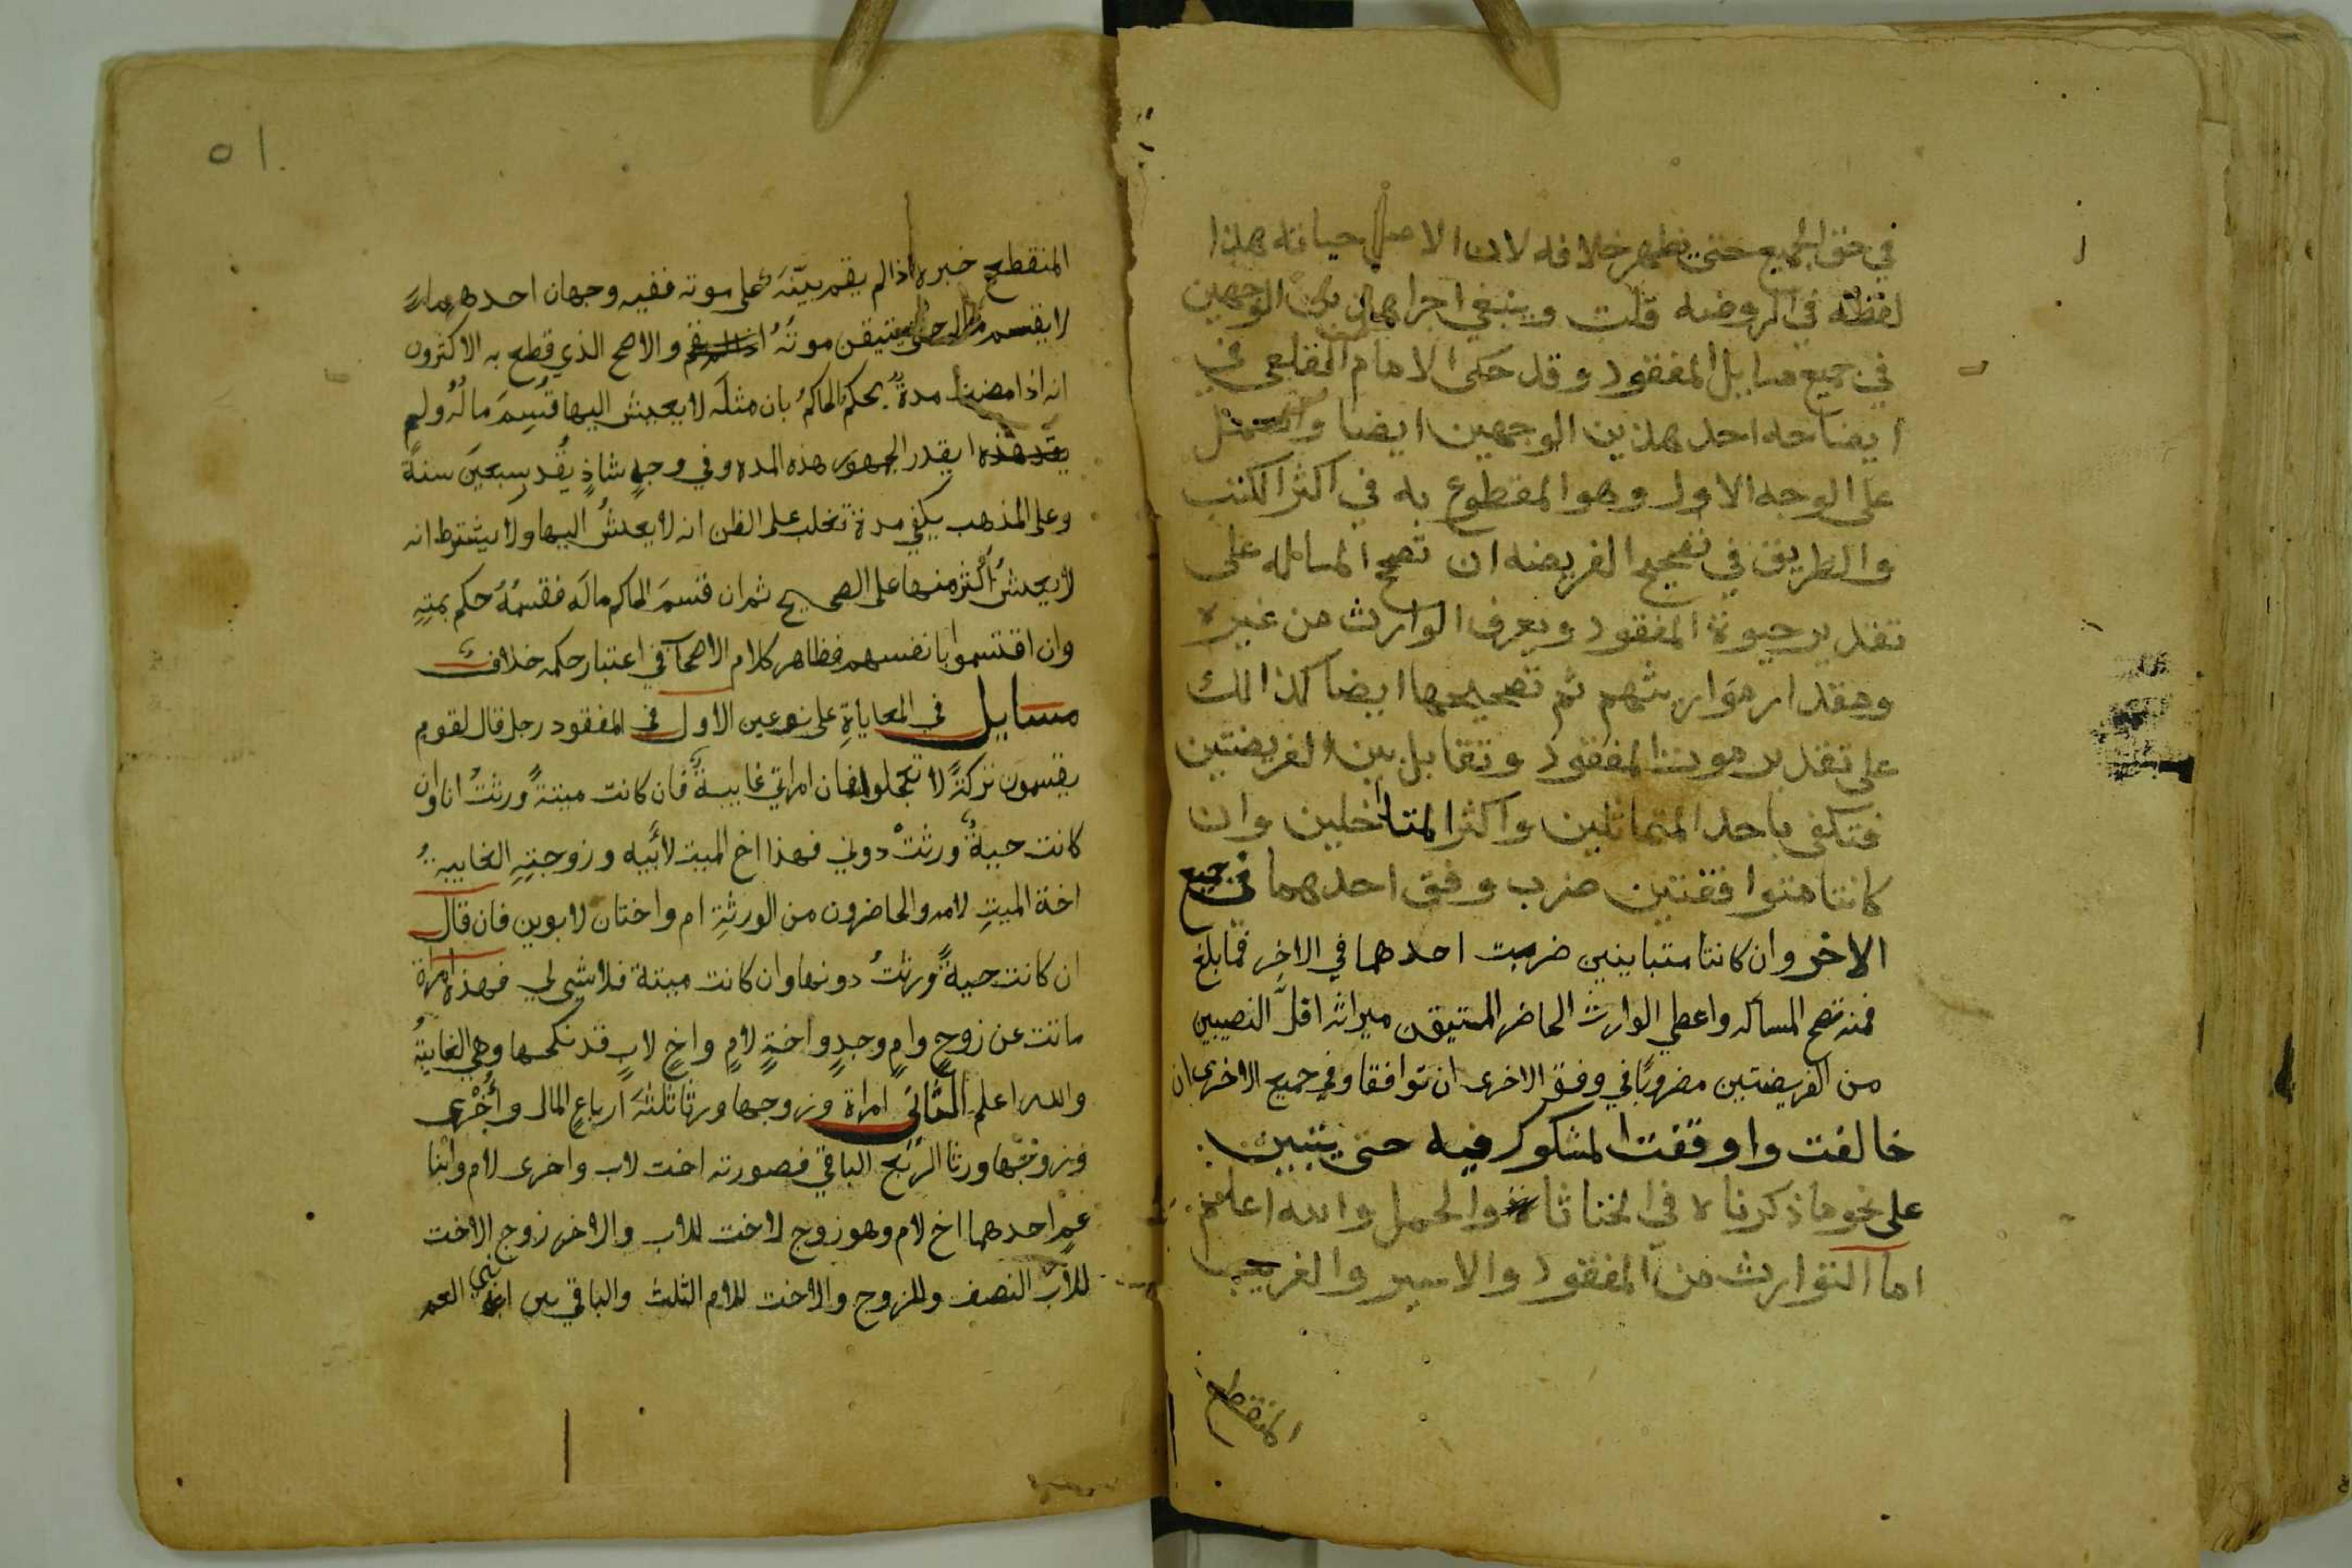 في حق الجميع حتى يظهر خلافه لان الاصل حياته هذا
لفظه في الروضه قلت وينبغي اجرا الوجهين
في جميع مسايل المفقود وقد حكى الامام القلعي في
ايضاحه احد هذين الوجهين ايضا
على الوجه الاول وهو المقطوع به في اكثر الكتب
والطريق في تصحيح الفريضه ان تصح المساله على
تقدير حيوة المفقود ويعرف الوارث من غيره
ومقدار مواريثهم ثم تصحيحها ايضا كذالك
على تقدير موت المفقود وتقابل بين الفريضتين
فتكفى باحد المتماثلين واكثر المتداخلين وان
كانتا متوافقتين ضرب وفق احدهما في جميع
الاخر وان كانتا متباينين ضربت احدهما في الاخر فما بلغ
فمنه تصح المساله واعطي الوارث الحاضر المتيقن ميراثه اقل النصيبين
من الفريضتين مضروبًا في وفق الاخرى ان توافقا وفي جميع الاخرى ان
خالفت واوقفت المشكوك فيه حتى يتبين
على نحو ما ذكرناه في الخناثاة والحمل والله اعلم
اما التوارث من المفقود والاسير والغريب
المنقطع
٥١
المنقطع خبره اذا لم يقم بينة على موته ففيه وجهان احدهما
لا يقسم ماله حتى يتيقن موته والاصح الذي قطع به الاكثرون
انه اذا مضت مدة يحكم الحاكم بان مثله لا يعيش اليها قُسِمَ ماله ولم
يقدر الجمهور هذه المده وفي وجهٍ شاذٍ يقدر بسبعين سنة
وعلى المذهب يكفي مدة تغلب على الظن انه لا يعيش اليها ولا يشترط انه
لا يعيش اكثر منها على الصحيح ثم ان قسم الحاكم ماله فقسمته حكم بموتهِ
وان اقتسموا بانفسهم فظاهر كلام الاصحاب في اعتبار حكمه خلاف
مسايل في المعاياةِ على نوعين الاول في المفقود رجل قال لقوم
يقسمون تركةً لا تعجلوا فان امراتي غايبةٌ فان كانت ميتةً ورثتُ انا وان
كانت حيةً ورثتْ دوني فهذا اخ الميت لابيه وزوجتِهِ الغايبة
اخة الميتِ لامه والحاضرون من الورثةِ ام واختان لابوين فان قال
ان كانت حيةً ورثتُ دونها وان كانت ميتة فلا شي لي فهذه امراة
ماتت عن زوجٍ وامٍ وجدٍ واخةٍ لامٍ واخٍ لابٍ قد نكحها وهي الغايبةُ
والله اعلم الثاني امراة وزوجها ورثا ثلثة ارباع المال وأخرى
وزوجها ورثا الربع الباقي فصورته اخت لاب واخرى لام وابنا
عم احدهما اخ لام وهو زوج لاخت للاب والاخر زوج الاخت
للاب النصف وللزوج والاخت للام الثلث والباقي بين ابني العم